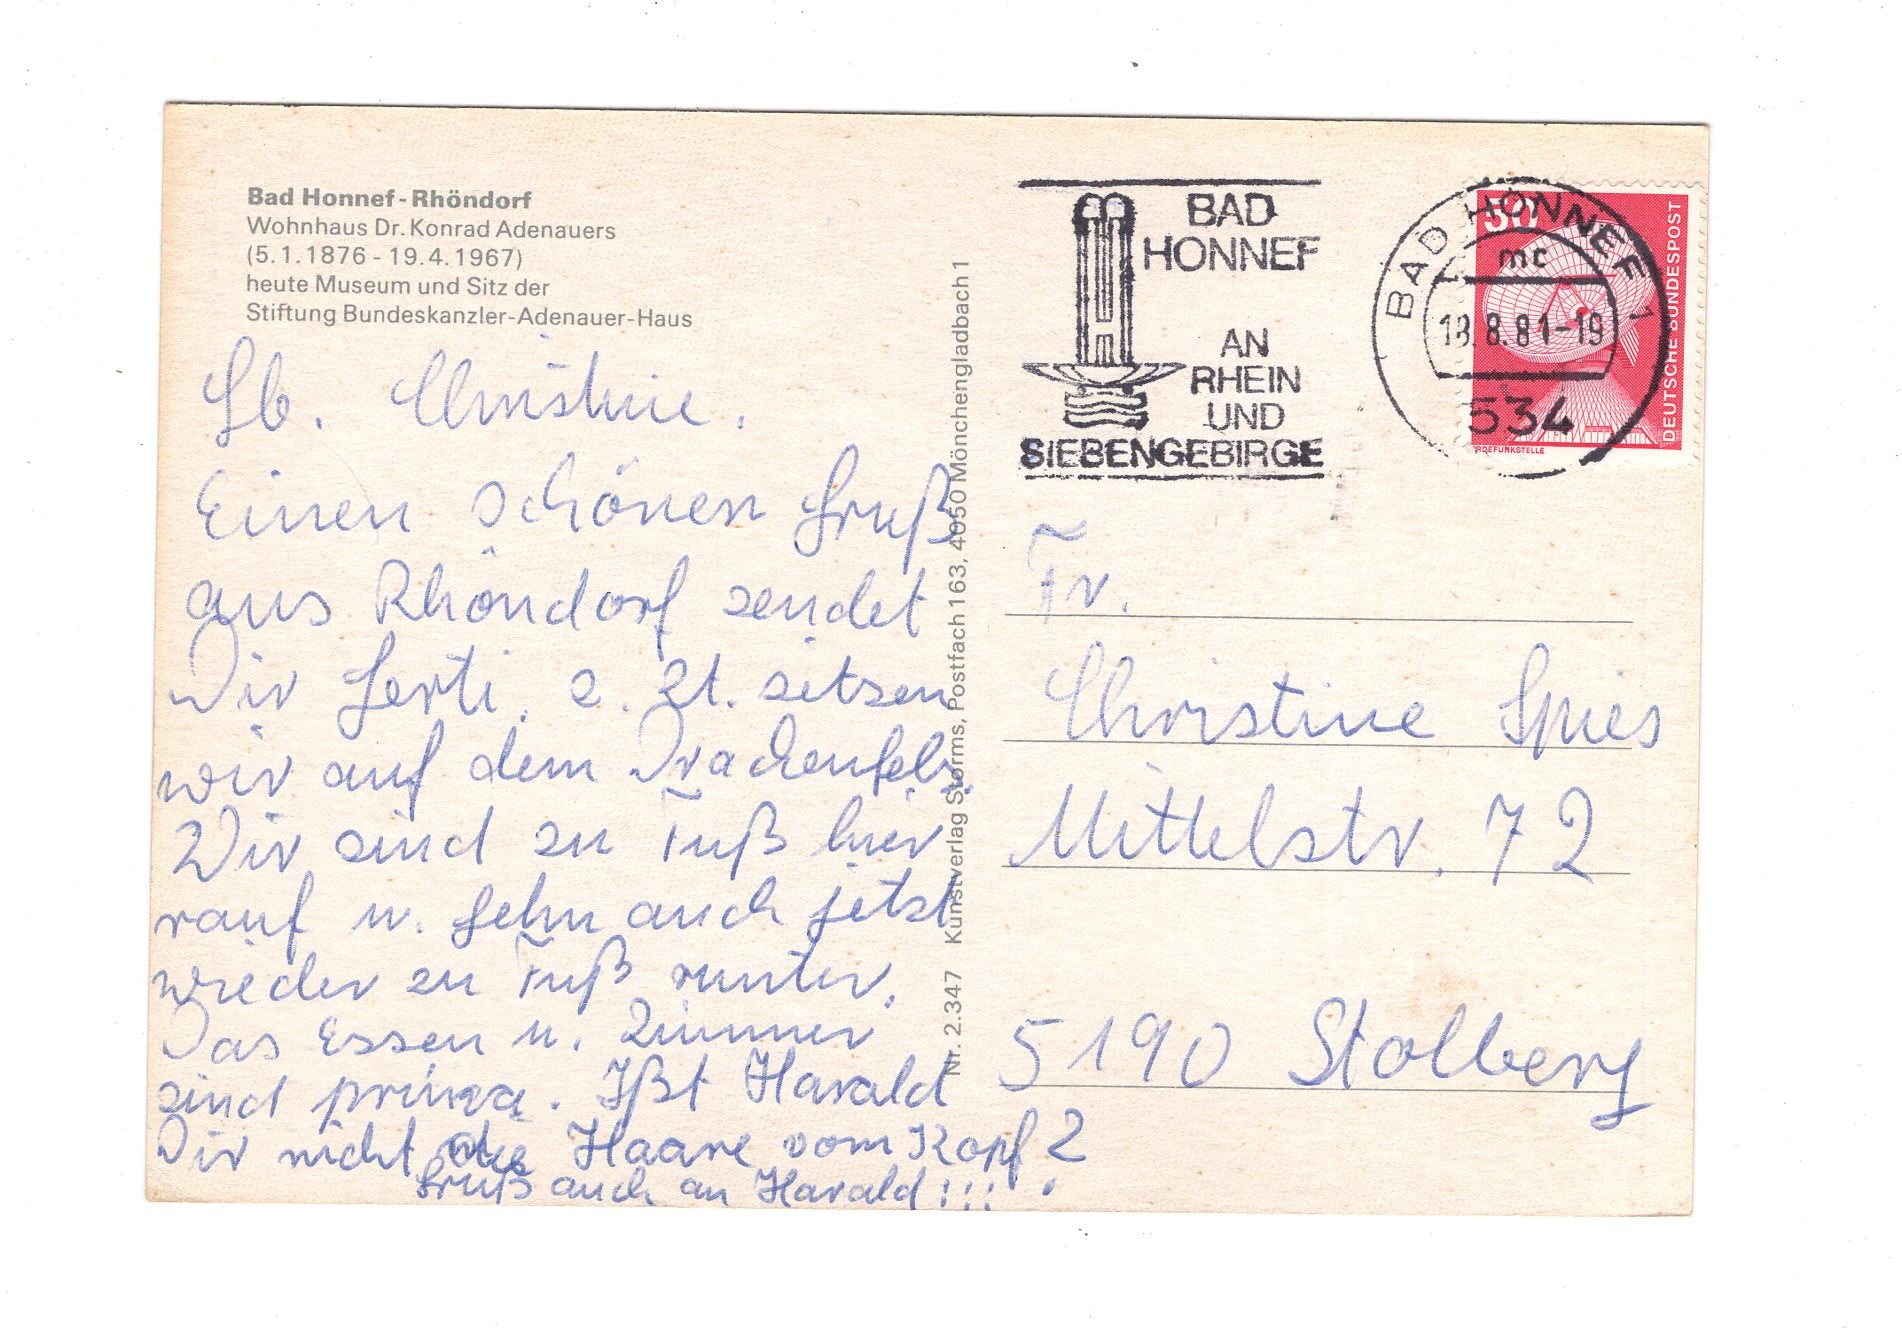 Bad Honnef-Rhöndorf
Wohnhaus Dr. Konrad Adenauers
(5.1.1876 - 19.4.1967)
heute Museum und Sitz der
Stiftung Bundeskanzler-Adenauer-Haus
Lb. Christine.
Einen schönen Gruß
aus Rhöndorf sendet
Dir Gerti. z. Zt. sitzen
wir auf dem Drachenfels.
Wir sind zu Fuß hier
rauf u. gehn auch jetzt
wieder zu Fuß runter.
Das Essen u. Zimmer
sind prima. Ißt Harald
Dir nicht die Haare vom Kopf?
Gruß auch an Harald!!!
Nr. 2.347 Kunstverlag Storms, Postfach 163, 4050 Mönchengladbach 1
BAD
HONNEF
AN
RHEIN
UND
SIEBENGEBIRGE
BAD HONNEF 1
mc
18.8.81-19
534
50
DEUTSCHE BUNDESPOST
RDEFUNKSTELLE
Fr.
Christine Spies
Mittelstr. 72
5190 Stolberg